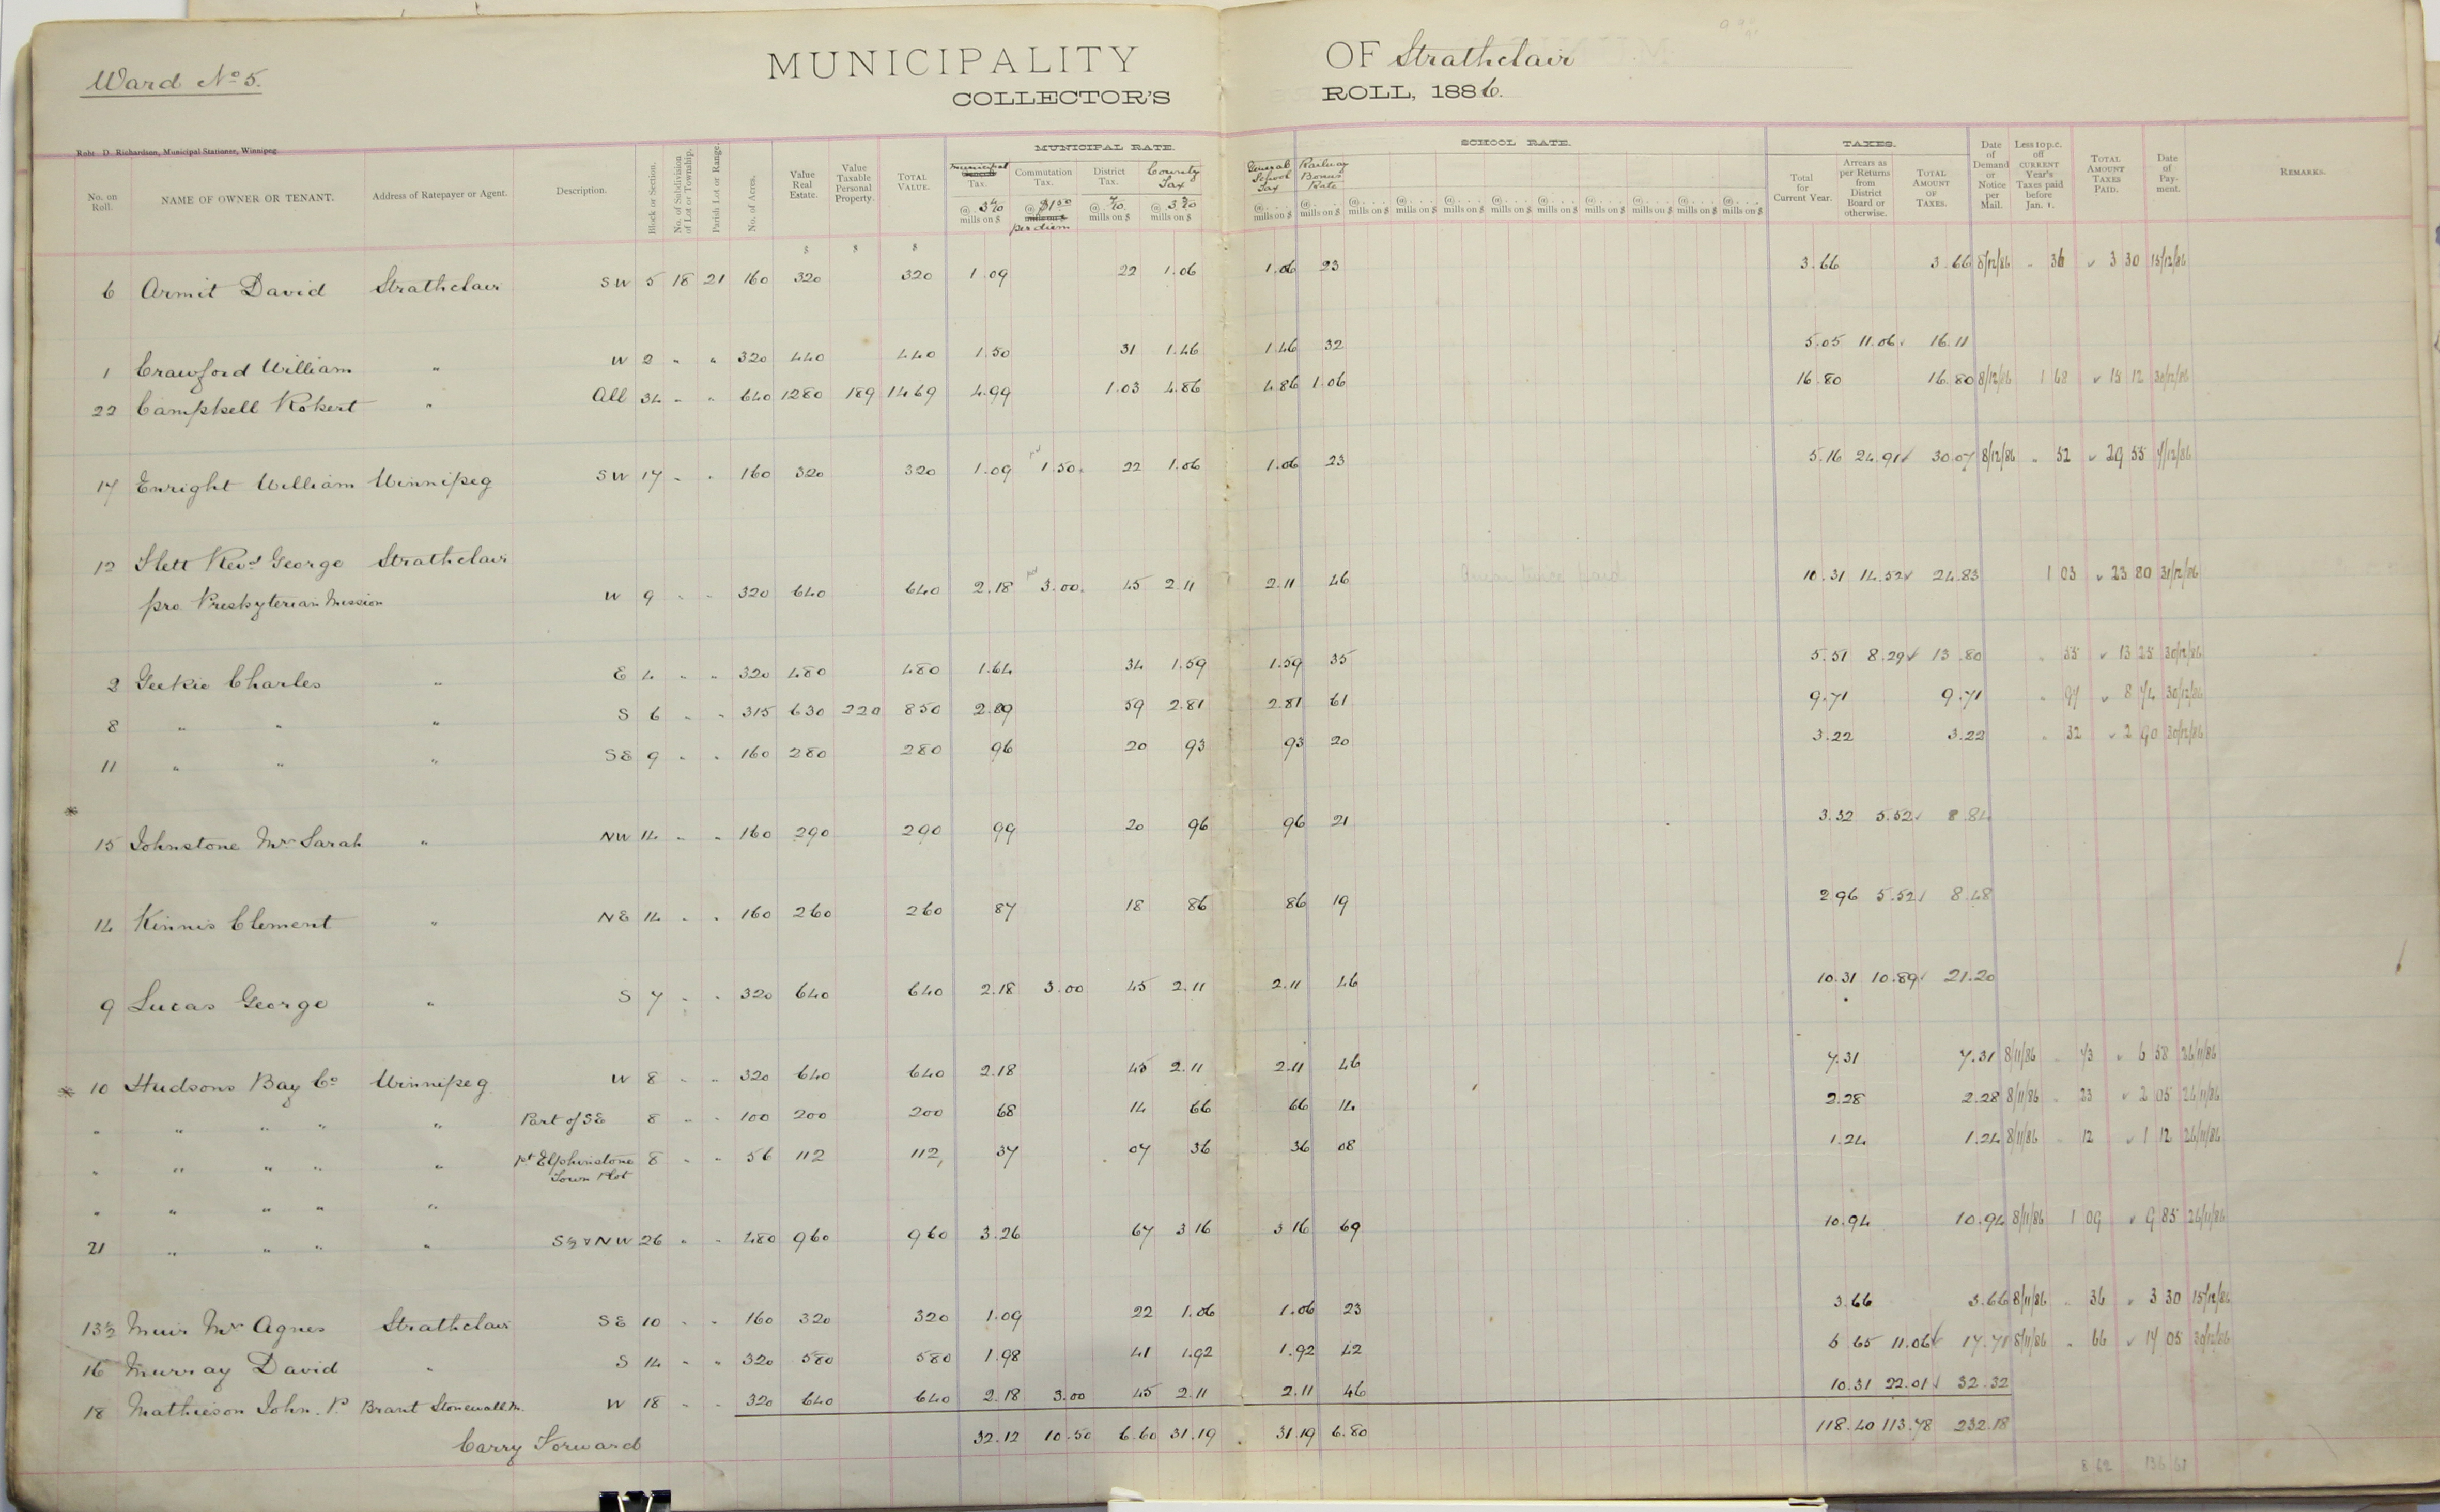 Ward No 5.
MUNICIPALITY OF Strathclair
COLLECTOR'S ROLL, 1886.
Robt. D. Richardson, Municipal Stationer, Winnipeg
MUNICIPAL RATE. SCHOOL RATE. TAXES.
No. on Roll. NAME OF OWNER OR TENANT. Address of Ratepayer or Agent. Description. Block or Section. No. of Subdivision of Lot or Township. Parish Lot or Range. No. of Acres. Value Real Estate. Value Taxable Personal Property. TOTAL VALUE. Municipal Tax. Commutation Tax. District Tax. County Tax General School Tax Railway Bonus Rate Total for Current Year. Arrears as per Returns from District Board or otherwise. TOTAL AMOUNT OF TAXES. Date of Demand or Notice per Mail. Less 10 p.c. off CURRENT Year's Taxes paid before Jan. 1. TOTAL AMOUNT TAXES PAID. Date of Payment. REMARKS.
@ mills on $ @ $1 50 per diem @ mills on $ @ mills on $ @ mills on $ @ mills on $ @ mills on $ @ mills on $ @ mills on $ @ mills on $ @ mills on $ @ mills on $ @ mills on $ @ mills on $ @ mills on $
$ $ $
6 Armit David Strathclair SW 5 18 21 160 320 320 1.09 22 1.06 1.06 23 3.66 3.66 8/12/86 " 36 3 30 15/12/86
1 Crawford William " W 2 " " 320 440 440 1.50 31 1.46 1.46 32 5.05 11.06 16.11
22 Campbell Robert " All 34 " " 640 1280 189 1469 4.99 1.03 4.86 4.86 1.06 16.80 16.80 8/12/86 1 68 15 12 /12/86
17 Enright William Winnipeg SW 17 " " 160 320 320 1.09 1.50 22 1.06 1.06 23 5.16 24.91 30.07 8/12/86 " 52 29 55 /12/86
12 Flett Revd George Strathclair
pro Presbyterian Mission W 9 " " 320 640 640 2.18 3.00 45 2.11 2.11 46 10.31 14.52 24.83 1 03 23 80 31/12/86
2 Geekie Charles " E 4 " " 320 480 480 1.64 34 1.59 1.59 35 5.51 8.29 13.80 " 55 13 25 30/12/86
8 " " " S 6 " " 315 630 220 850 2.89 59 2.81 2.81 61 9.71 9.71 " 97 8 74 30/12/86
11 " " " SE 9 " " 160 280 280 96 20 93 93 20 3.22 3.22 " 32 2 90 30/12/86
*
15 Johnstone Mrs Sarah " NW 14 " " 160 290 290 99 20 96 96 21 3.32 5.52 8.84
14 Kinnis Clement " NE 14 " " 160 260 260 87 18 86 86 19 2.96 5.52 8.48
9 Lucas George " S 7 " " 320 640 640 2.18 3.00 45 2.11 2.11 46 10.31 10.89 21.20
* 10 Hudsons Bay Co Winnipeg W 8 " " 320 640 640 2.18 45 2.11 2.11 46 7.31 7.31 8/11/86 " 73 6 58 26/11/86
" " " " " Part of SE 8 " " 100 200 200 68 14 66 66 14 2.28 2.28 8/11/86 " 23 2 05 26/11/86
" " " " " pt Elphinstone 8 " " 56 112 112 37 07 36 36 08 1.24 1.24 8/11/86 " 12 1 12 26/11/86
Town Plot
" " " " "
21 " " " " S½ & NW 26 " " 480 960 960 3.26 67 3 16 3 16 69 10.94 10.94 8/11/86 1 09 9 85 26/11/86
13½ Muir Mrs Agnes Strathclair SE 10 " " 160 320 320 1.09 22 1.06 1.06 23 3.66 3.66 8/11/86 " 36 3 30 15/12/86
16 Murray David " S 14 " " 320 580 580 1.98 41 1.92 1.92 42 6.65 11.06 17.71 8/11/86 " 66 17 05 30/12/86
18 Mathieson John. P. Brant Stonewall M. W 18 " " 320 640 640 2.18 3.00 45 2.11 2.11 46 10.31 22.01 32.32
Carry Forward 32.12 10.50 6.60 31.19 31.19 6.80 118.40 113.78 232.18
8 62 136 61